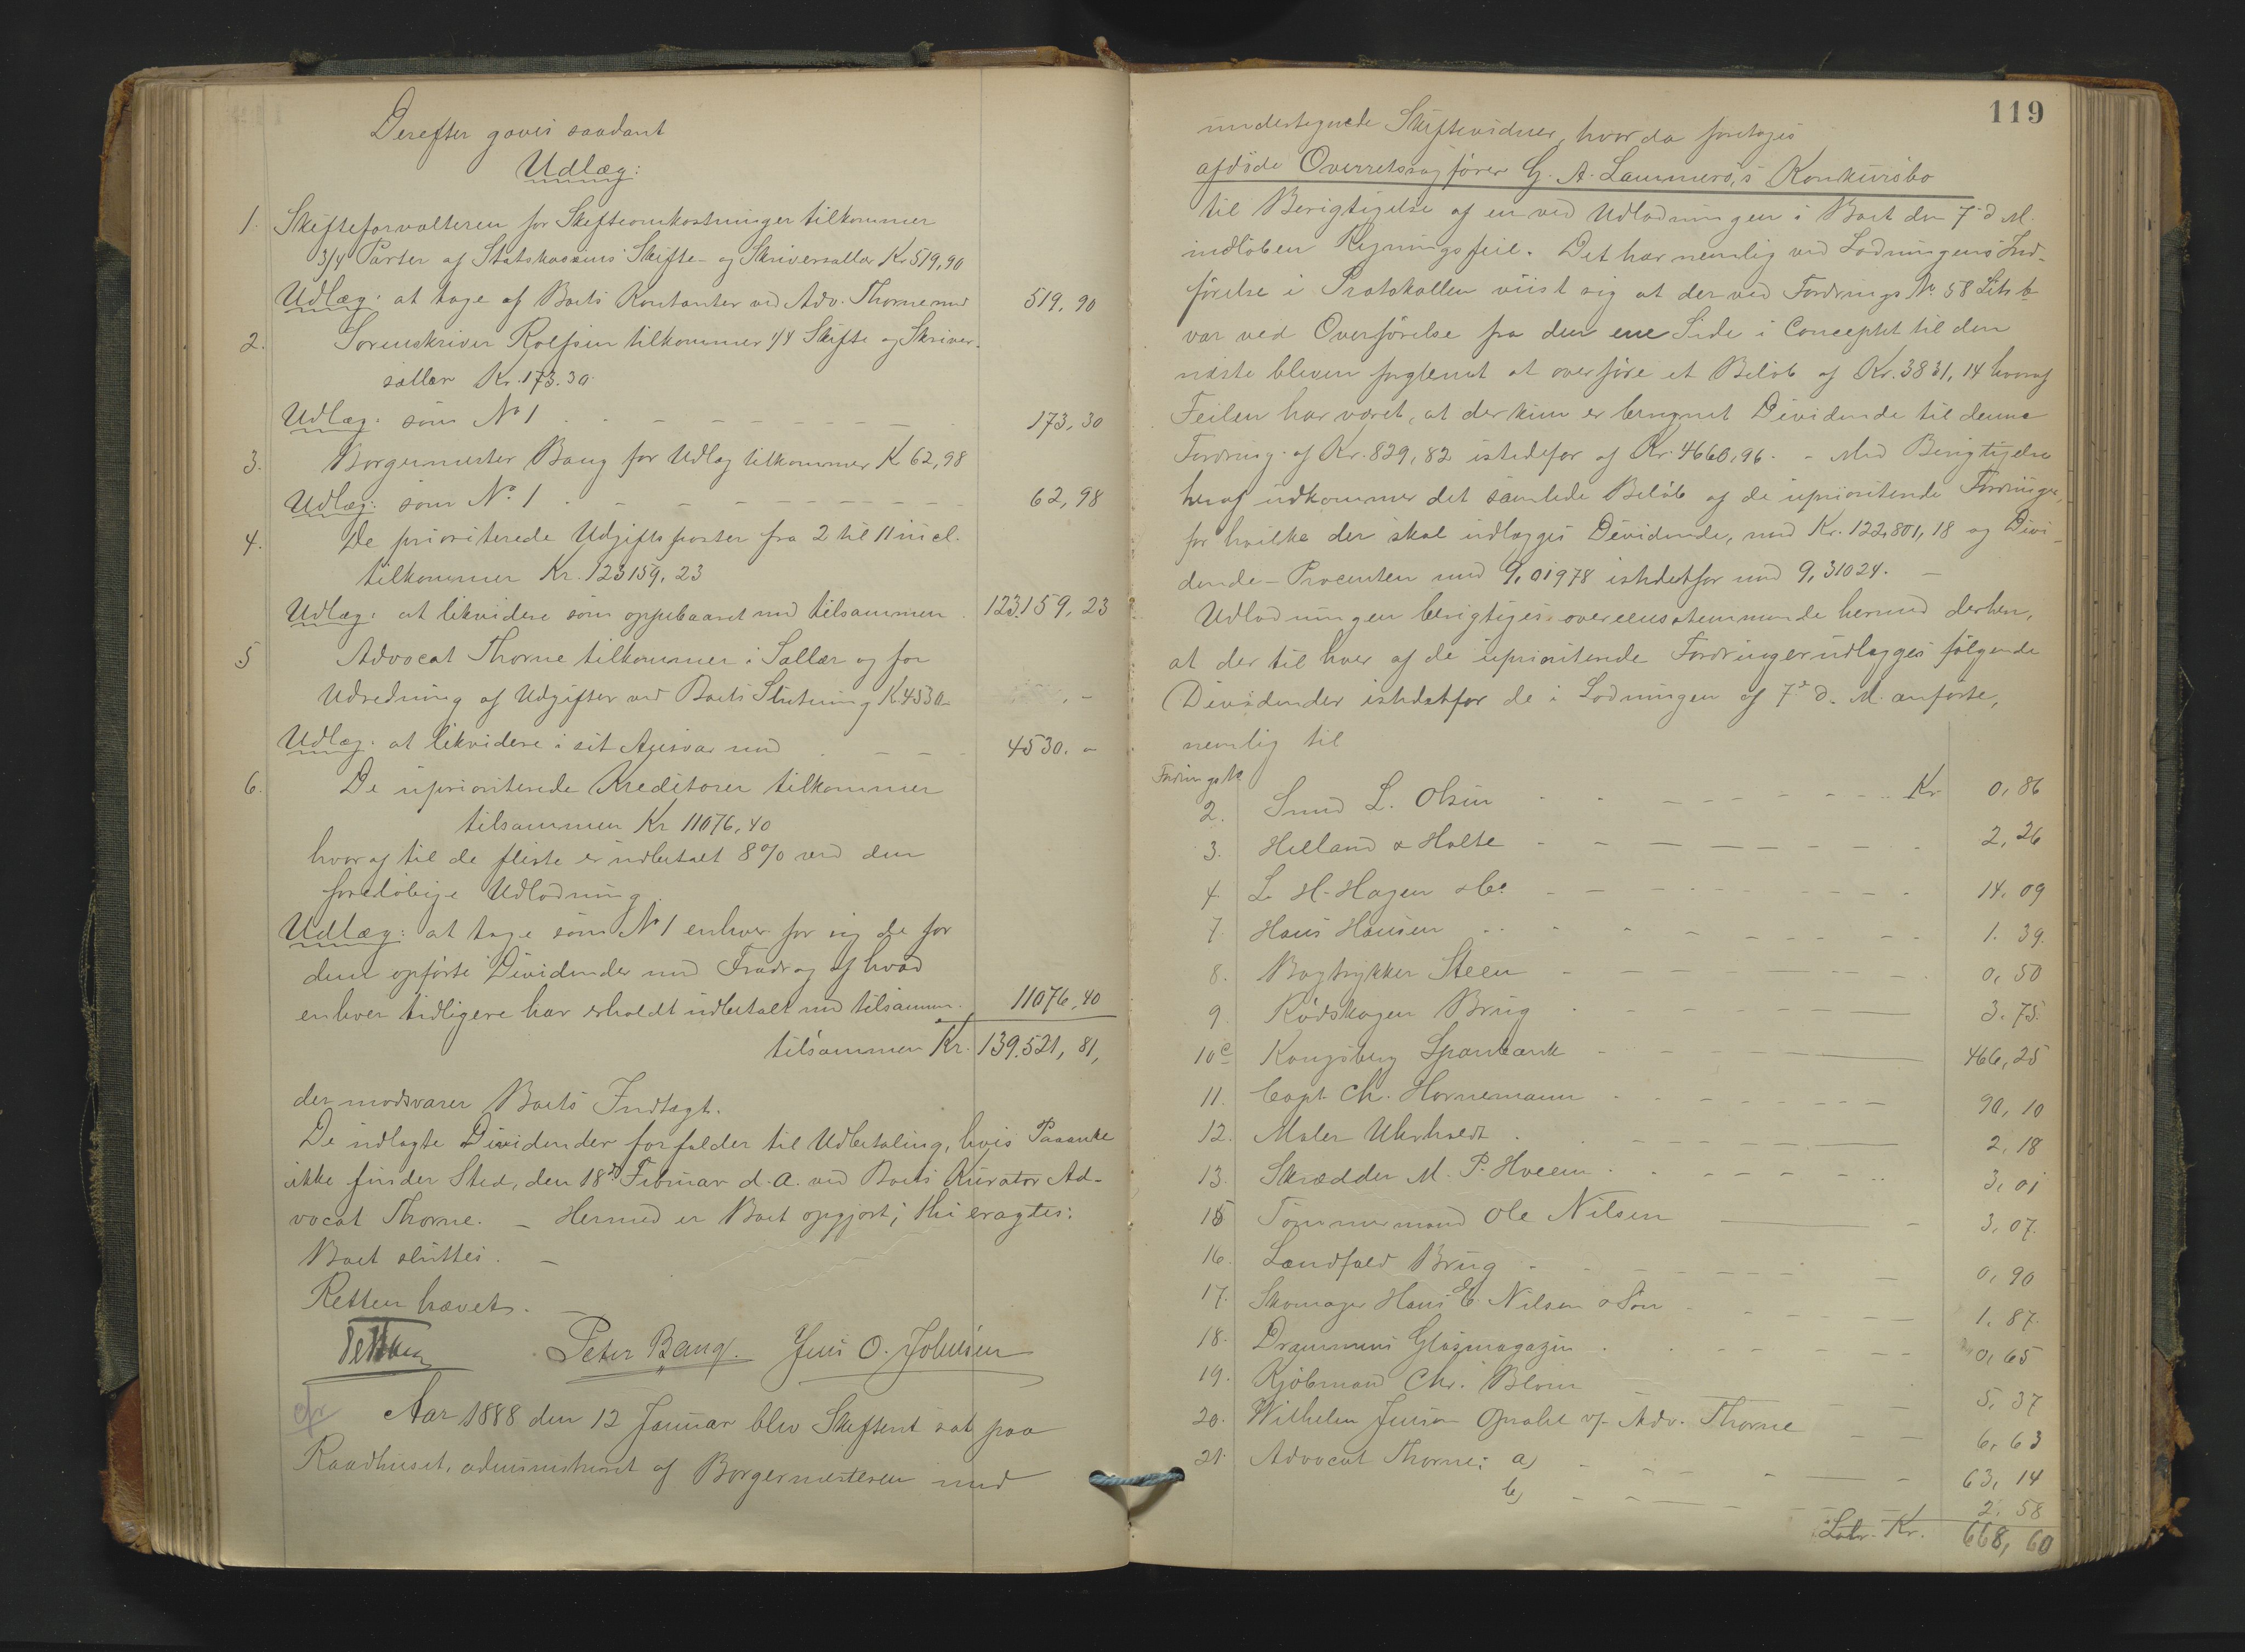 Derefter gaves saadant
Udlæg:
1. Skifteforvalteren for Skifteomkostninger tilkommer
3/4 Parter af Statskassens Skifte- og Skriversallær Kr 519,90
Udlæg: at tage af Boets Kontanter ved Adv. Thorne med 519,90
2. Sorenskriver Rolfsen tilkommer 1/4 Skifte og Skriver-
sallær Kr. 173.30.
Udlæg: som No 1 173,30
3. Borgermester Bang for Udlæg tilkommer Kr 62,98
Udlæg: som No. 1 62,98
4. De prioriterede Udgiftsposter fra 2 til 11 incl.
tilkommer Kr. 123159,23
Udlæg: at likvidere som oppebaaret med tilsammen 123.159,23
5 Advocat Thorne tilkommer i Sallær og for
Udredning af Udgifter ved Boets Slutning Kr 4530 –
Udlæg: at likvidere i sit Ansvar med 4530. –
6. De uprioriterede Kreditorer tilkommer
tilsammen Kr 11076,40
hvoraf til de fleste er udbetalt 8% ved den
foreløbige Udlodning.
Udlæg: at tage som No 1 enhver for sig de for
dem opførte Dividender med Fradrag af hvad
enhver tidligere har erholdt udbetalt med tilsammen. 11076,40
tilsammen Kr. 139.521,81,
der modsvarer Boets Indtægt.
De udlagte Dividender forfalder til Udbetaling, hvis Paaanke
ikke finder Sted, den 18de Februar d. A. ved Boets Kurator Ad-
vocat Thorne. – Hermed er Boet opgjort; thi eragtes:
Boet sluttes. –
Retten hævet. –
Peter Bang. Jens O. Johnsen
Aar 1888 den 12 Januar blev Skifteret sat paa
Raadhuset, administreret af Borgermesteren med
119
undertegnede Skiftevidner, hvor da foretoges
afdøde Overretssagfører G. A. Lammers's Konkursbo
til Berigtigelse af en ved Udlodningen i Boet den 7de d. M.
indløben Regningsfeil. Det har nemlig ved Lodningens Ind-
førelse i Protokollen viist sig at der ved Fordrings No. 58 Litr b
var ved Overførelse fra den ene Side i Conceptet til den
næste bleven forglemt at overføre et Beløb af Kr. 3831,14 hvoraf
Feilen har været, at der kun er beregnet Dividende til denne
Fordring af Kr. 829,82 istedefor af Kr. 4660,96. – Med Berigtigelse
heraf udkommer det samlede Beløb af de uprioriterede Fordringer,
for hvilke der skal udlægges Dividende, med Kr. 122,801,18 og Divi-
dende-Procenten med 9,01978 istedetfor med 9,31024. –
Udlodningen berigtiges overeensstemmende hermed derhen,
at der til hver af de uprioriterede Fordringer udlægges følgende
Dividender istedetfor de i Lodningen af 7de d. M. anførte,
nemlig til
Fordrings No
2. Smed L. Olsen Kr 0,86
3. Helland & Holte 2,26
4. L. H. Hagen & Co. 14,09
7 Hans Hansen 1.39.
8. Bogtrykker Steen 0,50
9. Rødskogen Brug 3.75.
10c Kongsberg Sparebank 466,25
11. Capt. Chr. Hornemann 90,10
12. Maler Uhrholdt 2,18
13. Skrædder M. P. Hveem 3,01
15 Tømmermand Ole Nilsen 3,07.
16. Landfald Brug 0,90
17. Skomager Hans E. Nilsen & Søn 1.87.
18. Drammens Glasmagazin 0,65
19. Kjøbmand Chr. Blom 5,37
20. Wilhelm Jensen v/ Adv. Thorne 6,63
21. Advocat Thorne: a) 63,14
b) 2,58
Kr. 668,60